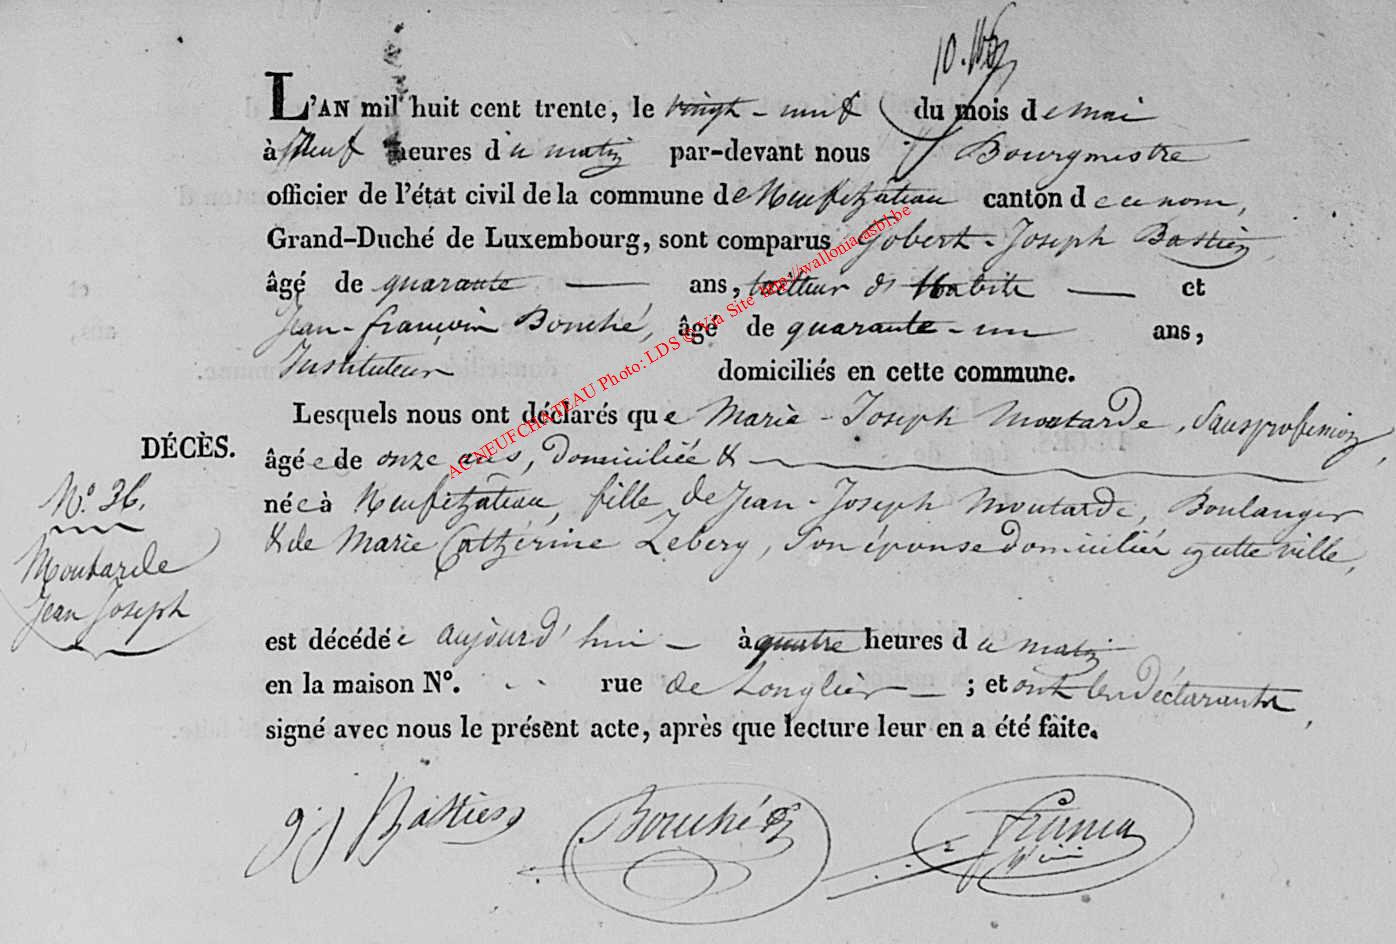 L'AN mil huit cent trente, le vingt-neuf du mois de mai
à neuf heures du matin par-devant nous Bourgmestre
officier de l'état civil de la commune de Neufchâteau canton de ce nom,
Grand-Duché de Luxembourg, sont comparus Gobert-Joseph Bastien,
âgé de quarante ans, et
Jean-françois Bouché, âgé de quarante-un ans,
Instituteur domiciliés en cette commune.
Lesquels nous ont déclarés que Marie-Joseph Moutarde, Sans profession,
DÉCÈS.
âgée de onze ans, domiciliée &
N.º 36.
née à Neufchâteau, fille de Jean-Joseph Moutarde, Boulanger
& de Marie Cathérine Zebery, Son épouse domiciliés cette ville,
Moutarde
Jean Joseph
est décédée aujourd'hui à quatre heures du matin
en la maison Nº. rue de Longlier ; et ont les déclarants,
signé avec nous le présent acte, après que lecture leur en a été faite.
gj Bastien Bouché
AC NEUFCHATEAU Photo: LDS © Via Site http://wallonia-asbl.be